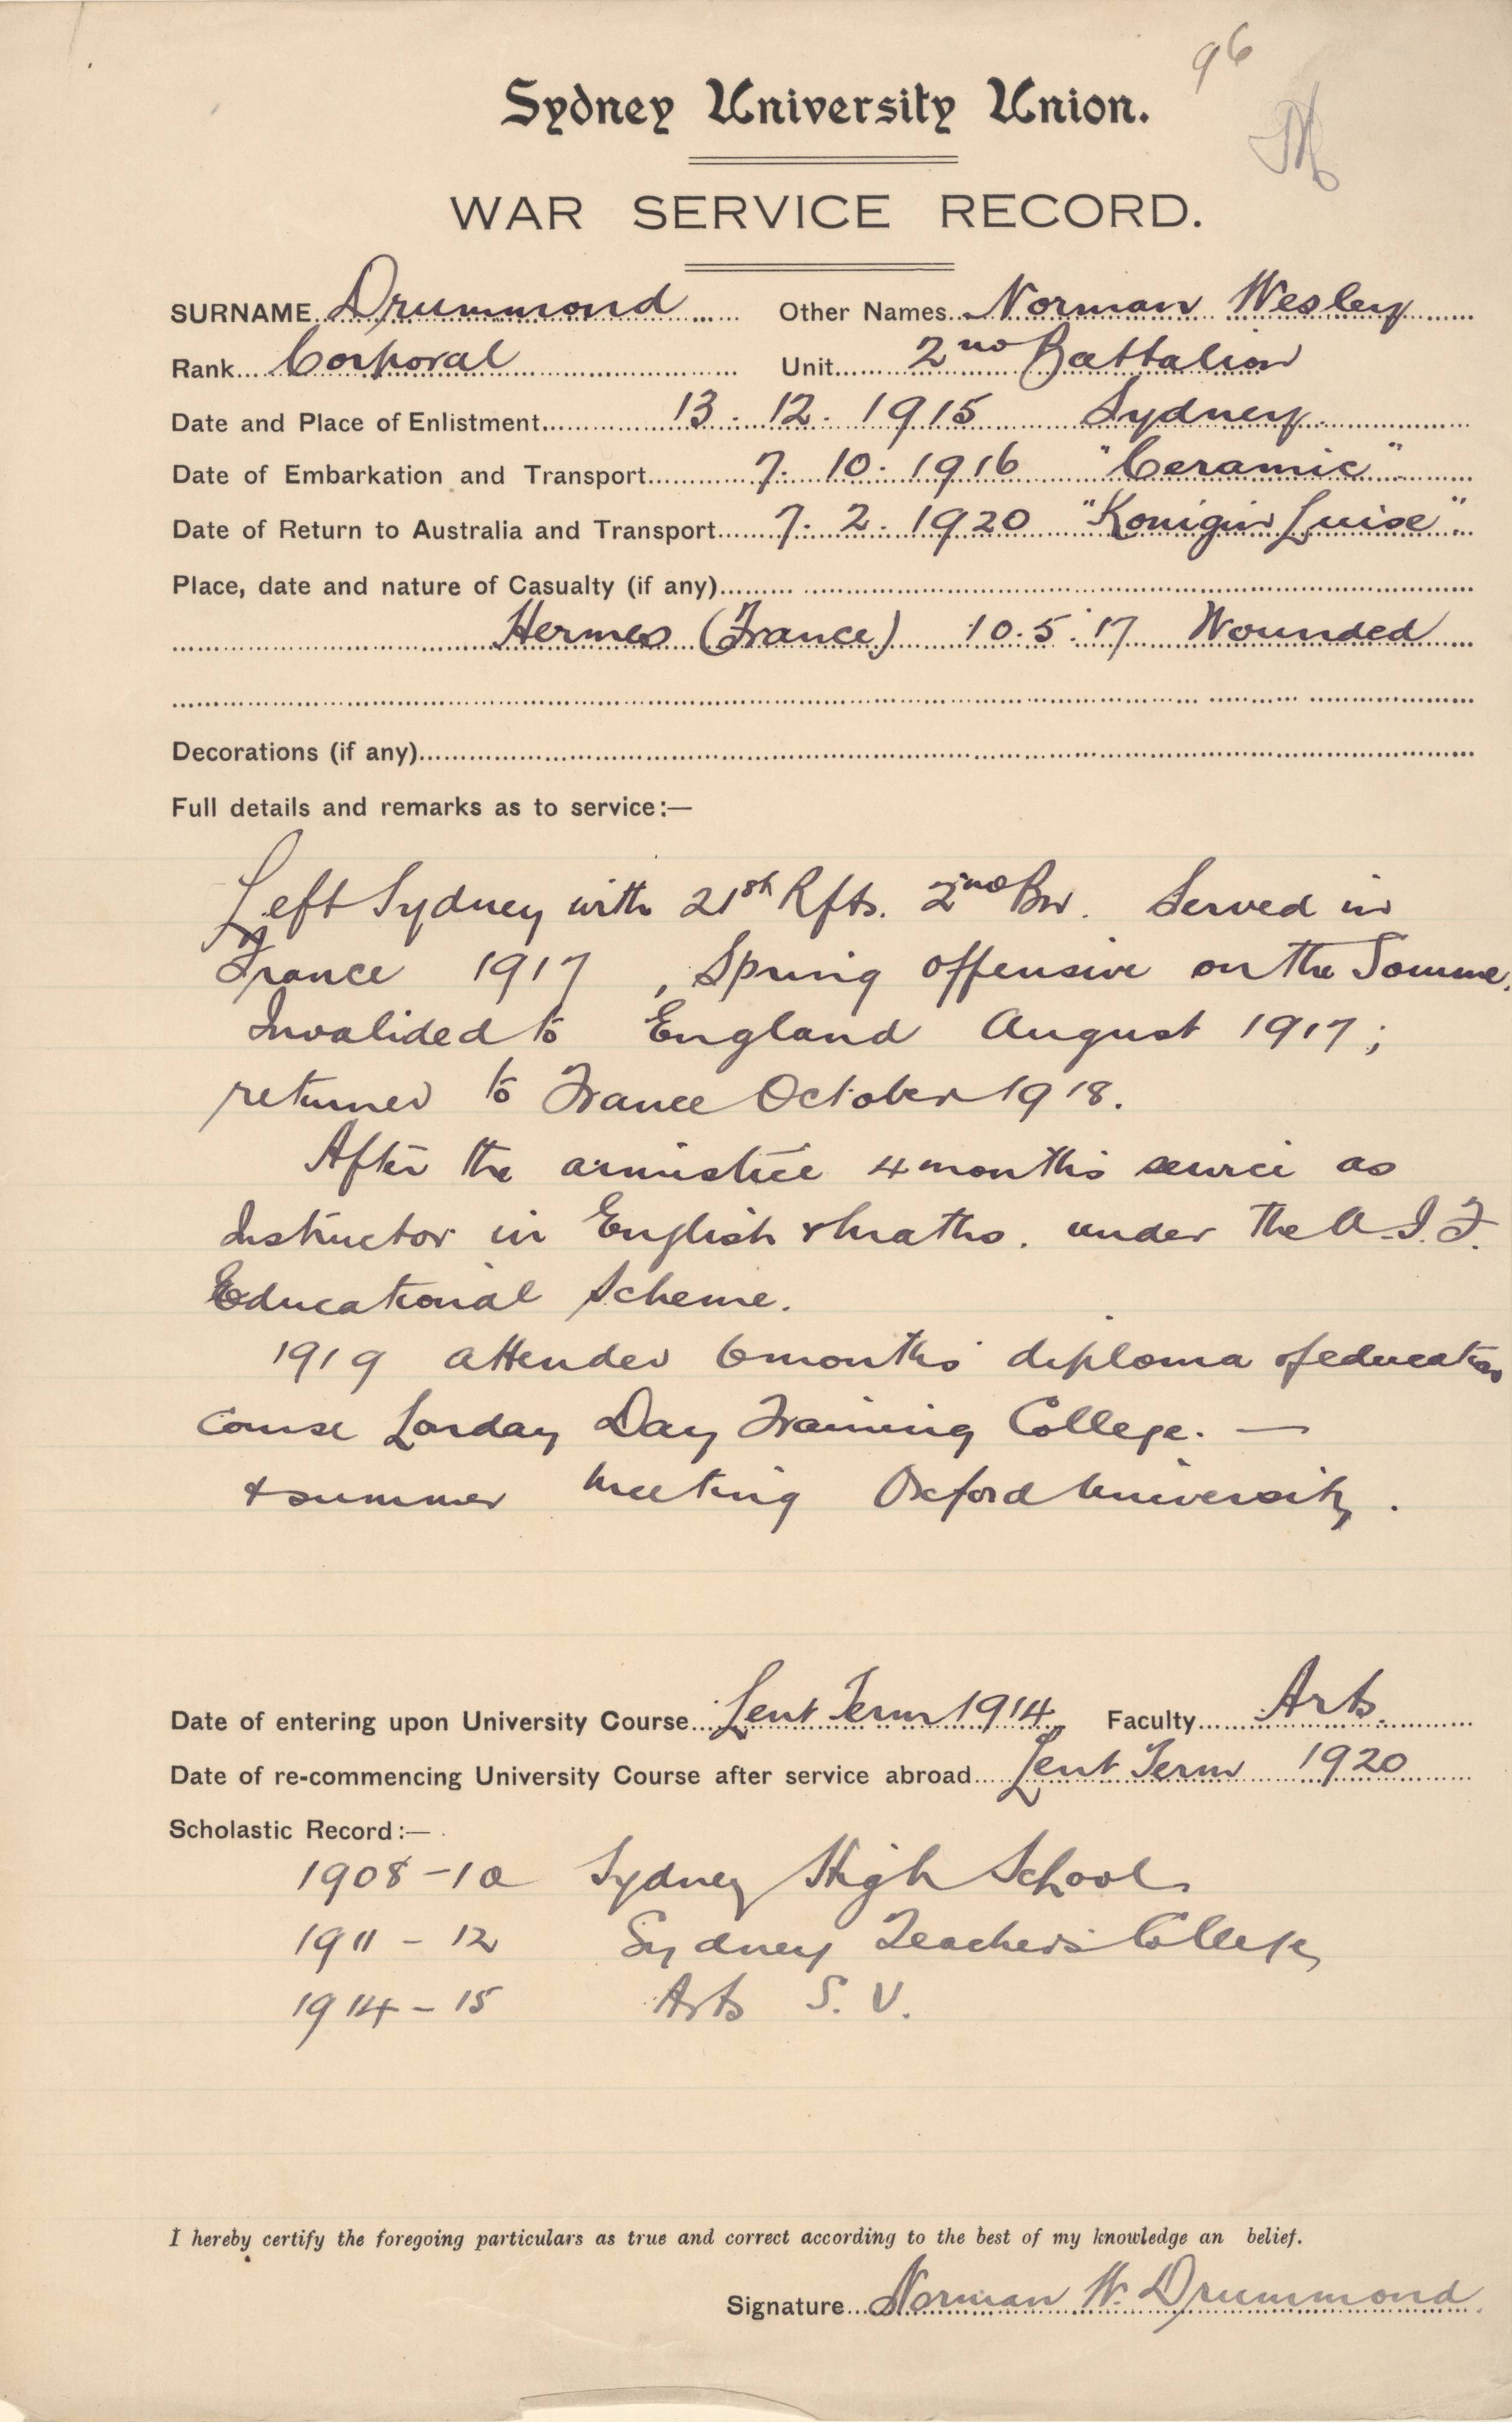 96
Sydney University Union.
WAR SERVICE RECORD.
SURNAME Drummond Other Names Norman Wesley
Rank Corporal Unit 2nd Battalion
Date and Place of Enlistment 13. 12. 1915 Sydney
Date of Embarkation and Transport 7. 10. 1916 "Ceramic"
Date of Return to Australia and Transport 7. 2. 1920 "Konigin Luise"
Place, date and nature of Casualty (if any)
Hermes (France) 10.5.17 Wounded
Decorations (if any)
Full details and remarks as to service:—
Left Sydney with 21st Rfts. 2nd Bn. Served in
France 1917, Spring offensive on the Somme.
Invalided to England August 1917;
returned to France October 1918.
After the armistice 4 months service as
Instructor in English & Maths. under the A.I.F.
Educational Scheme.
1919 attended 6 months diploma of education
course London Day Training College. —
& summer meeting Oxford University.
Date of entering upon University Course Lent Term 1914 Faculty Arts
Date of re-commencing University Course after service abroad Lent Term 1920
Scholastic Record:—
1908-10 Sydney High School
1911-12 Sydney Teachers College
1914-15 Arts S. U.
I hereby certify the foregoing particulars as true and correct according to the best of my knowledge an belief.
Signature Norman W. Drummond